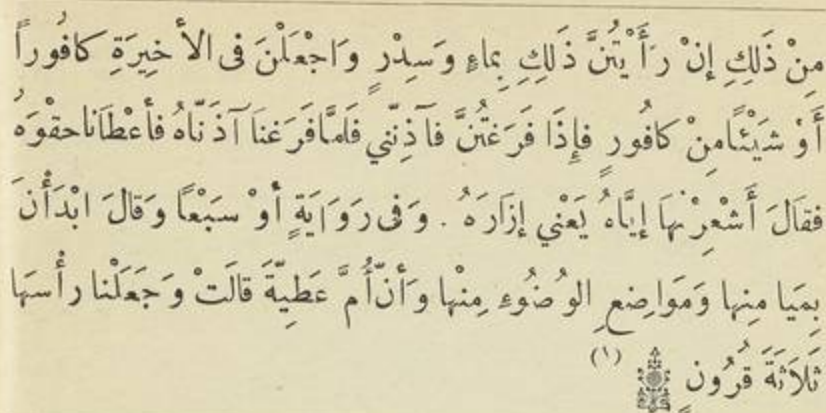 مِنْ ذَلِكِ إِنْ رَأَيْتُنَّ ذَلِكِ بِمَاءٍ وَسِدْرٍ وَاجْعَلْنَ فى الأَخِيرَةِ كَافُوراً
أَوْ شَيْئًا مِنْ كافُورٍ فإِذَا فَرَغْتُنَّ فآذِنَّنِي فَلَمَّا فَرَغْنَا آذَنَّاهُ فأَعْطَانا حقْوَهُ
فقَالَ أَشْعِرْنَها إِيَّاهُ يَعْنِي إِزَارَهُ . وَفى رَوَايَةٍ أَوْ سَبْعًا وَقالَ ابْدَأْنَ
بِمَيَا مِنِها وَمَوَاضِعِ الوُضُوءِ مِنْها وَأَنَّ أُمَّ عَطِيَّةَ قالَتْ وَجَعَلْنا رأْسَها
ثَلَاثَةَ قُرُونٍ (١)